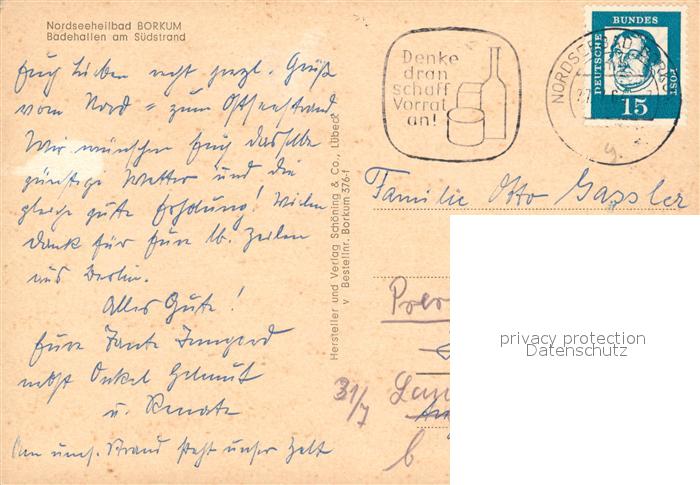 Nordseeheilbad BORKUM
Badehallen am Südstrand
Euch Lieben recht herzl. Grüße
vom Nord = zum Ostseestrand
Wir wünschen Euch dasselbe
günstige Wetter und die
gleiche gute Erholung! Vielen
Dank für Eure lb. Zeilen
aus Berlin.
Alles Gute!
Eure Tante Irmgard
nebst Onkel Helmut
u. Renate
Am Strand steht unser Zelt
Hersteller und Verlag Schöning & Co., Lübeck
v Bestellnr. Borkum 376-f
Denke
dran
schaff
Vorrat
an!
NORDSEEBAD BORKUM
DEUTSCHE BUNDESPOST
15
Familie Otto Gassler
31/7
b
privacy protection
Datenschutz